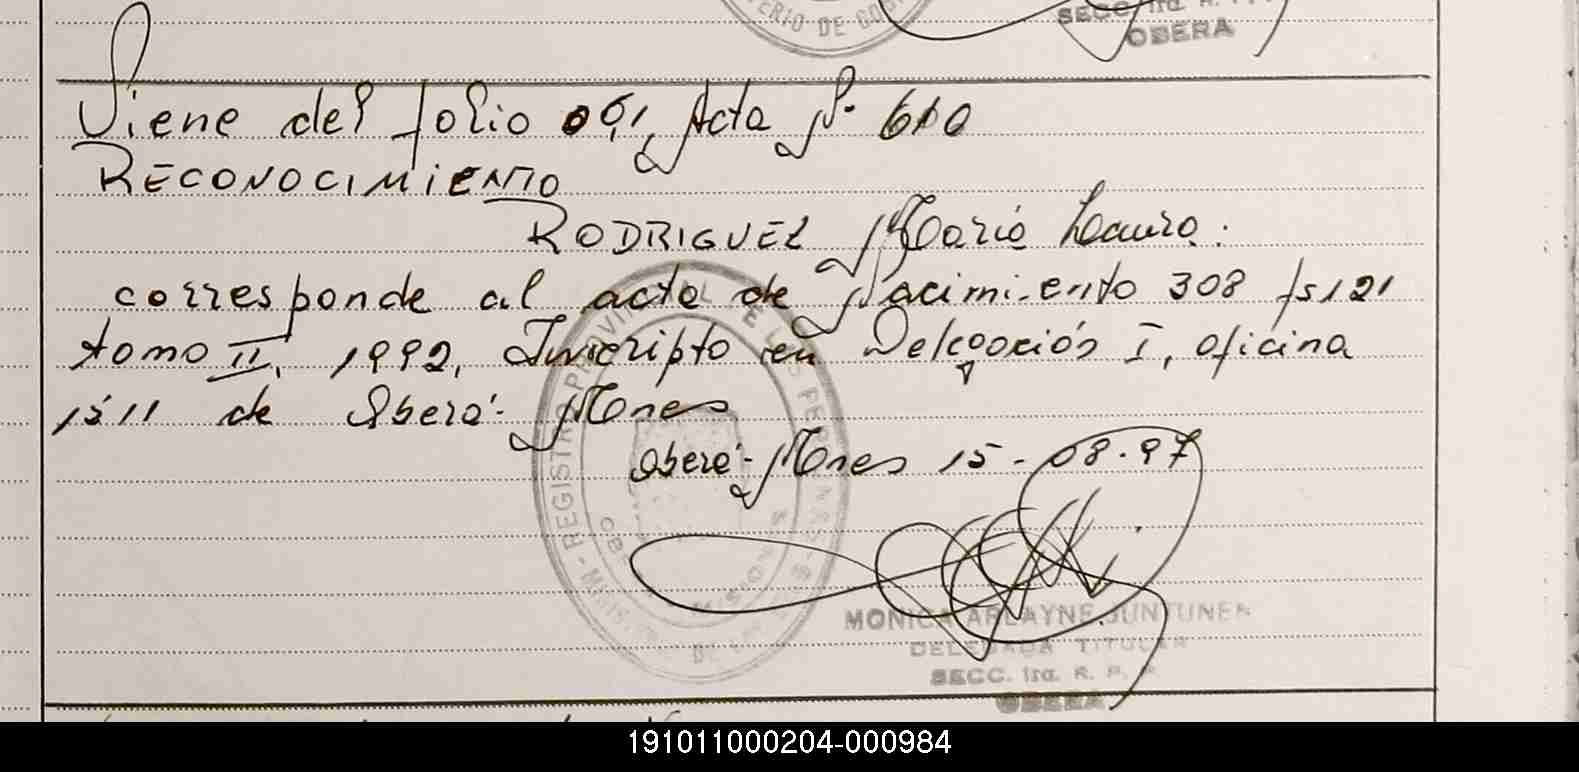 SECC. 1ra. R.
OBERA
Viene del folio 061, Acta Nº 610
RECONOCIMIENTO
RODRIGUEZ María Laura.
corresponde al acta de Nacimiento 308 fs 121
tomo II, 1992, Inscripto en Delegación I, oficina
1511 de Oberá- Mnes
Oberá- Mnes 15-08-97
REGISTRO PROVINCIAL DE LAS PERSONAS
MISIONES
MONICA ARLAYNE JUNTUNEN
DELEGADA TITULAR
SECC. 1ra. R. P. P
OBERA
191011000204-000984